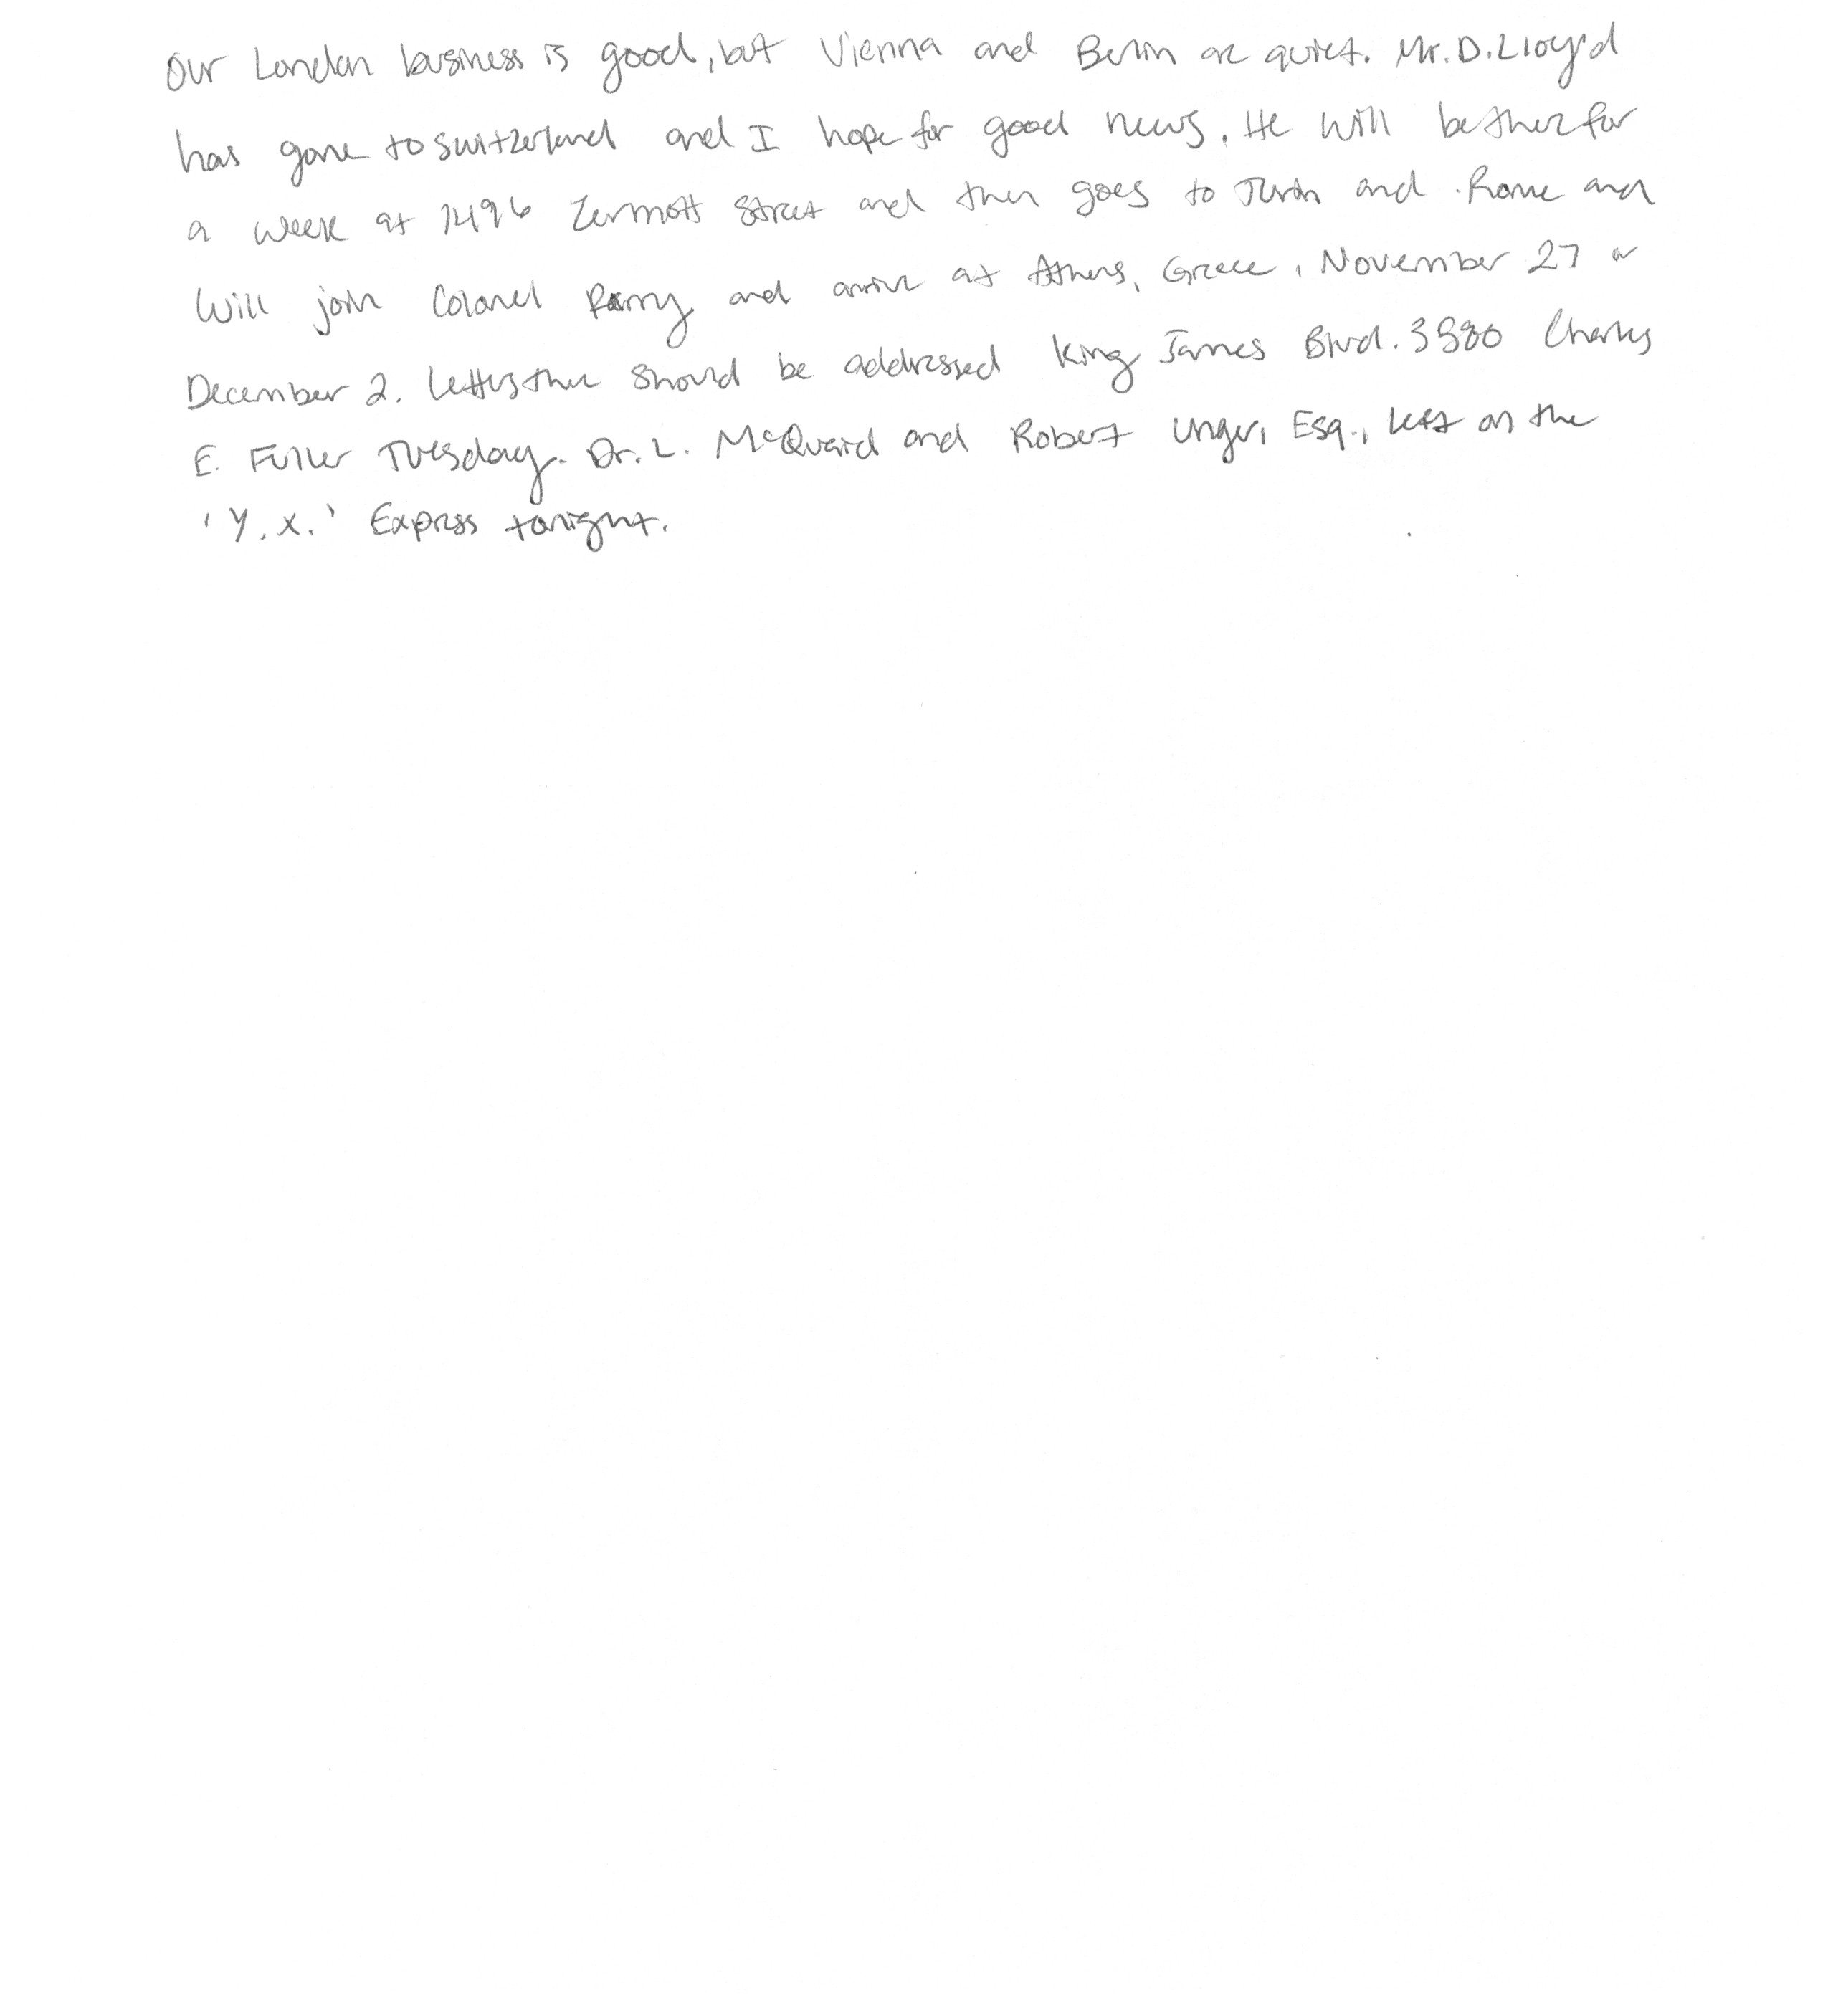 Our London business is good, but Vienna and Berlin are quiet. Mr. D. Lloyd
has gone to Switzerland and I hope for good news. He will be there for
a week at 1496 Zermott Street and then goes to Turin and Rome and
will join Colonel Parry and arrive at Athens, Greece, November 27 or
December 2. Letters there should be addressed King James Blvd. 3580 Charles
E. Fuller Tuesday. Dr. L. McQuaid and Robert Unger, Esq., left on the
'Y. X.' Express tonight.